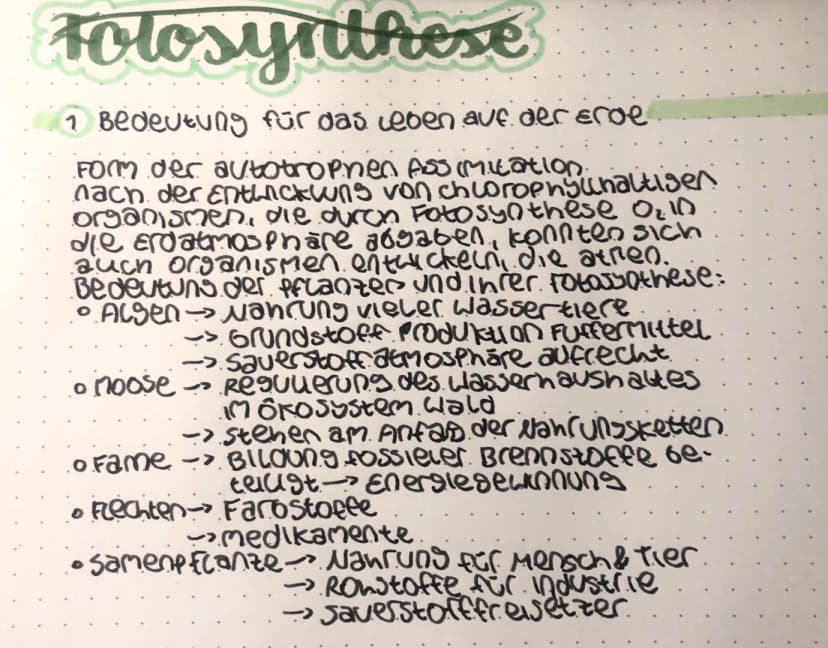 Fotosynthese
1 Bedeutung für das Leben auf der Erde
Form der autotrophen Assimilation.
nach der Entwicklung von chlorophyllhaltigen
Organismen, die durch Fotosynthese O₂ in
die Erdatmosphäre abgaben, konnten sich
auch Organismen entwickeln, die atmen.
Bedeutung der Pflanzen und ihrer Fotosynthese:
o Algen -> Nahrung vieler Wassertiere
-> Grundstoff Produktion Futtermittel
-> Sauerstoffatmosphäre aufrecht
o Moose -> Regulierung des Wasserhaushaltes
im Ökosystem Wald
-> stehen am Anfang der Nahrungsketten
o Farne -> Bildung fossieler Brennstoffe be-
teiligt -> Energiegewinnung
o Flechten -> Farbstoffe
-> Medikamente
• Samenpflanze -> Nahrung für Mensch & Tier
-> Rohstoffe für Industrie
-> Sauerstofffreisetzer